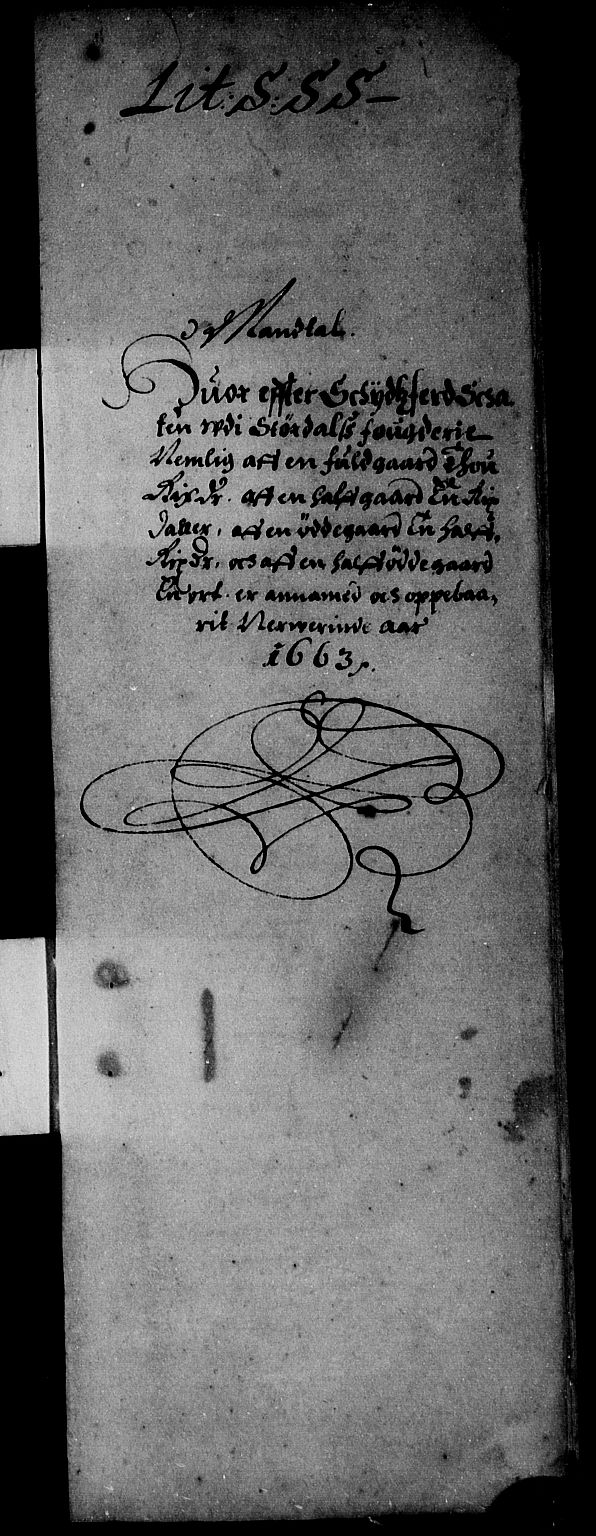 Lit: S: S S –
Mandtal.
Huor effter Schÿdtzferd Scha
ten udi Stördalß fougderie
Nemlig aff en fuldgaard Thou
Rixdr. aff en halff gaard En Rix
daller, aff en öddegaard En halff,
Rixdr, och aff en halff öddegaard
En ort. er annamed och oppebaa,
rit Nerwerinde aar
1663.